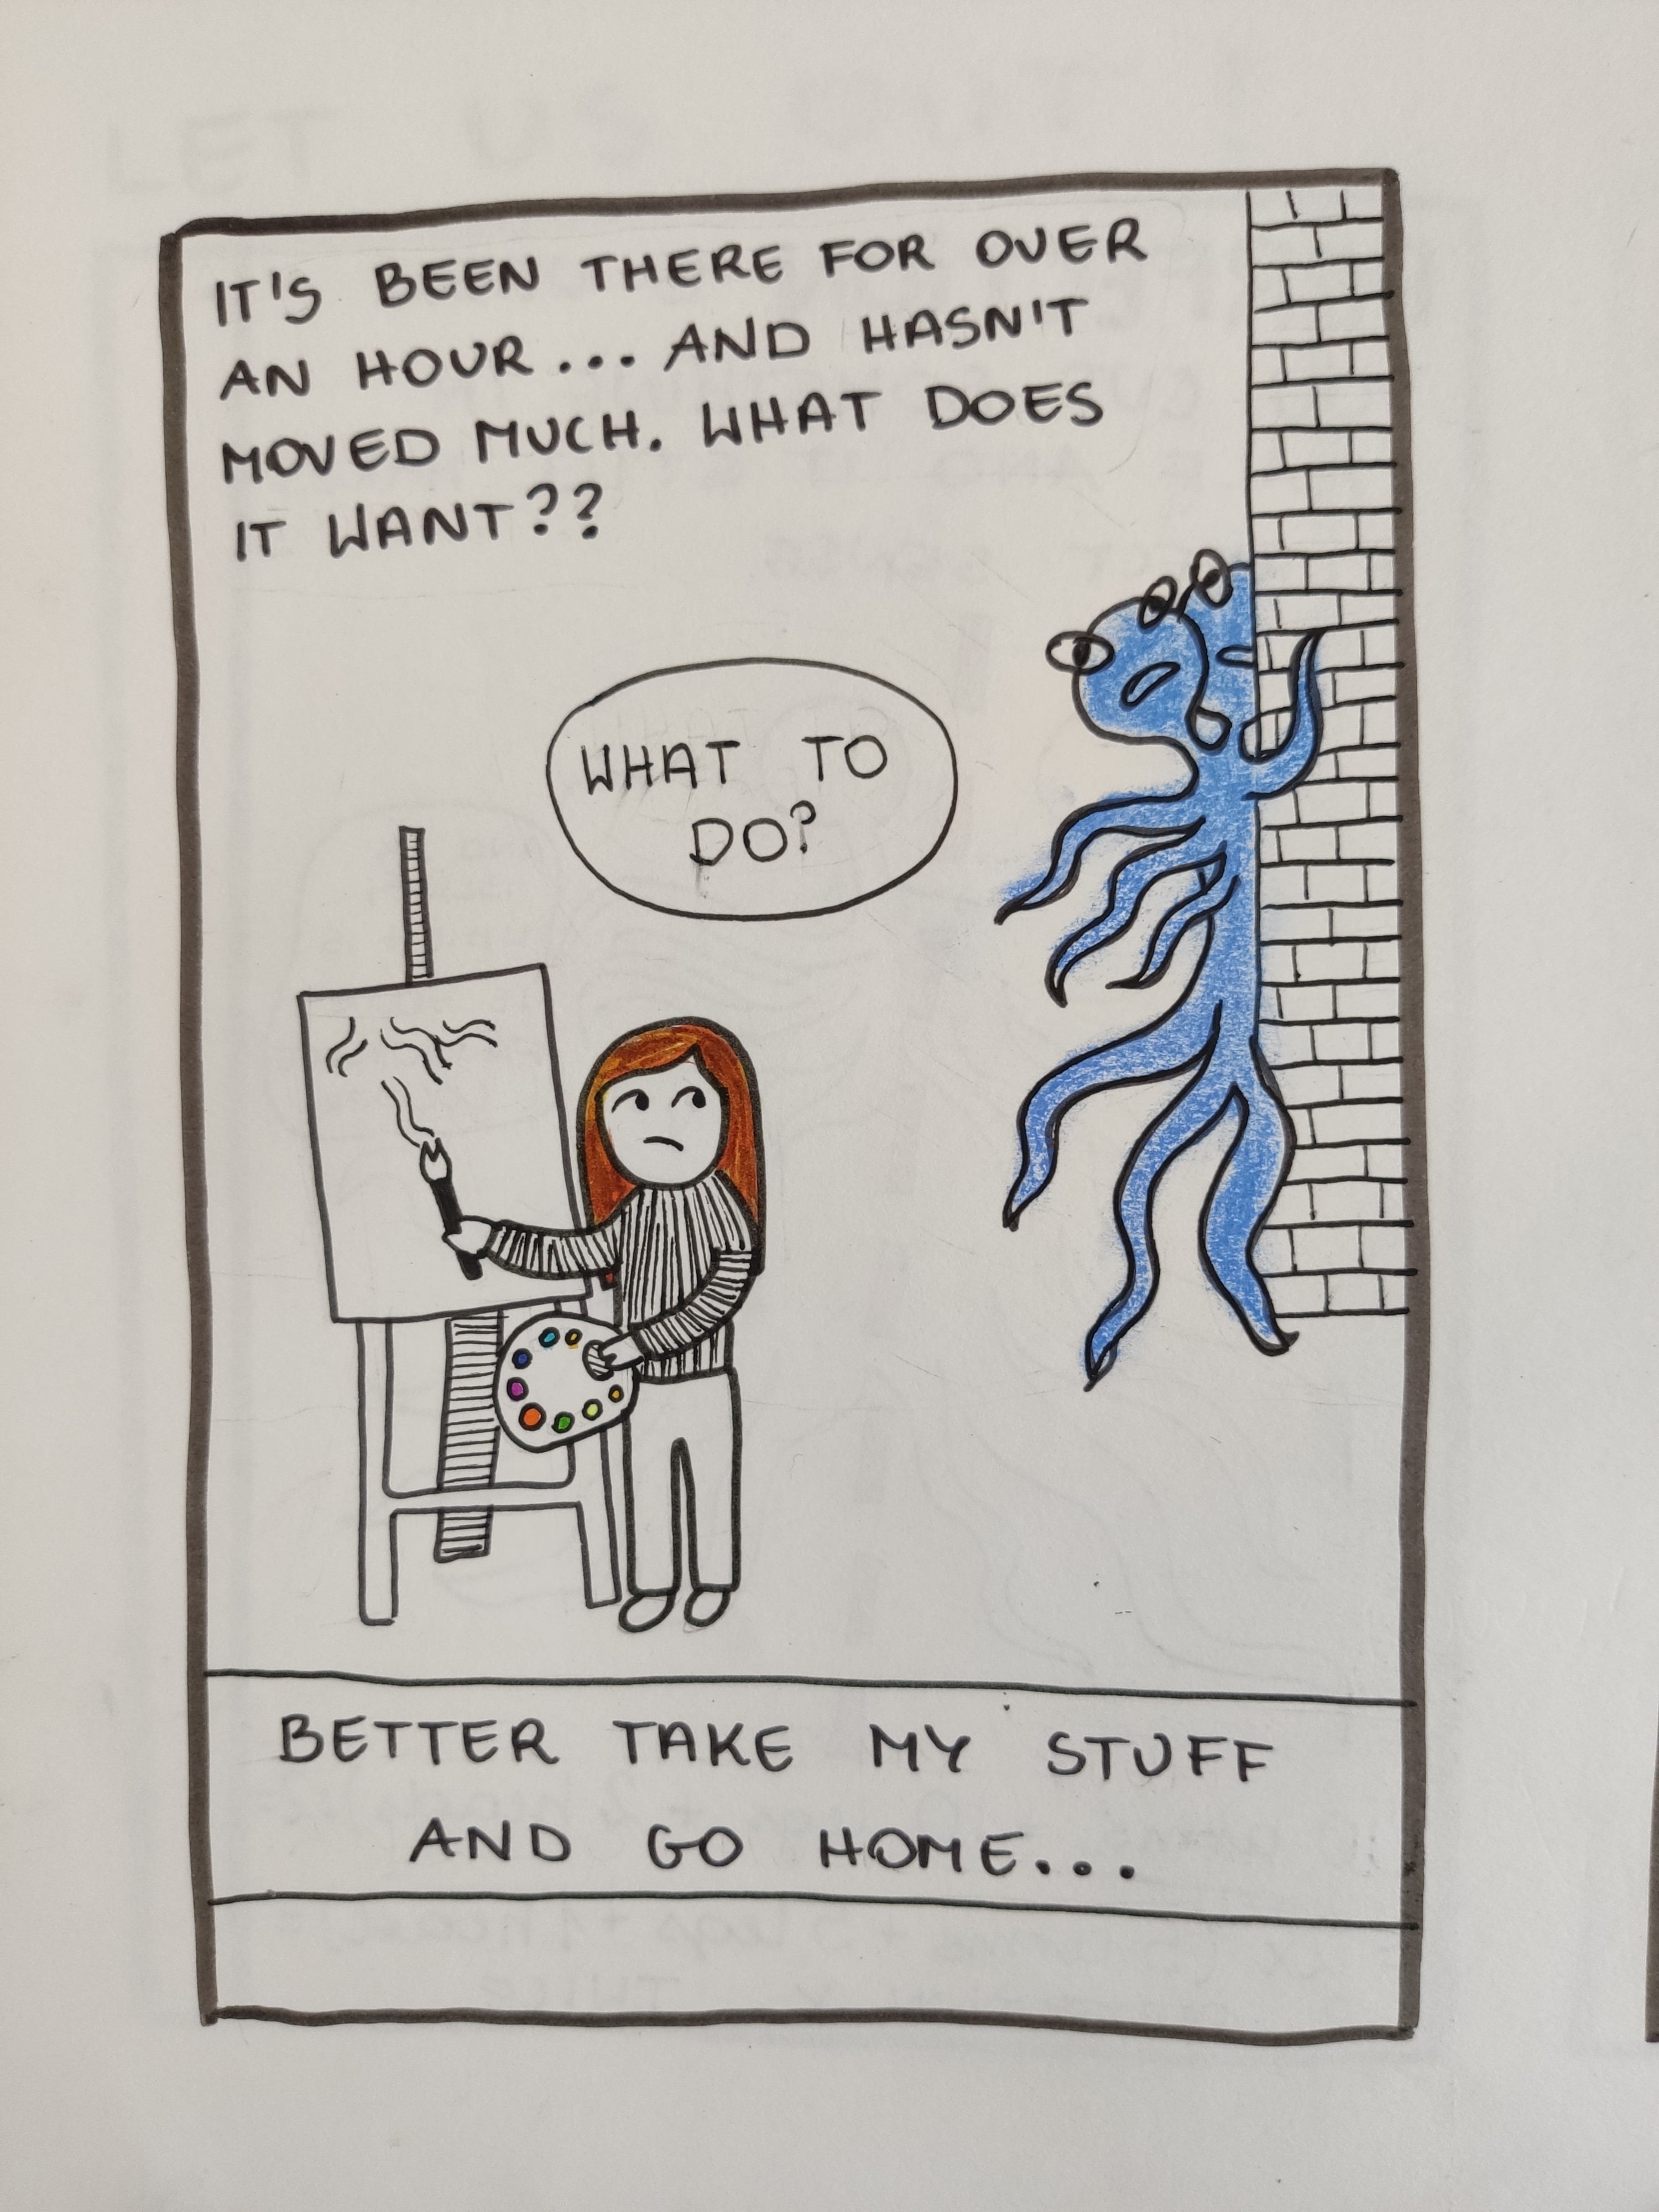 IT'S BEEN THERE FOR OVER
AN HOUR... AND HASN'T
MOVED MUCH. WHAT DOES
IT WANT??
WHAT TO
DO?
BETTER TAKE MY STUFF
AND GO HOME...